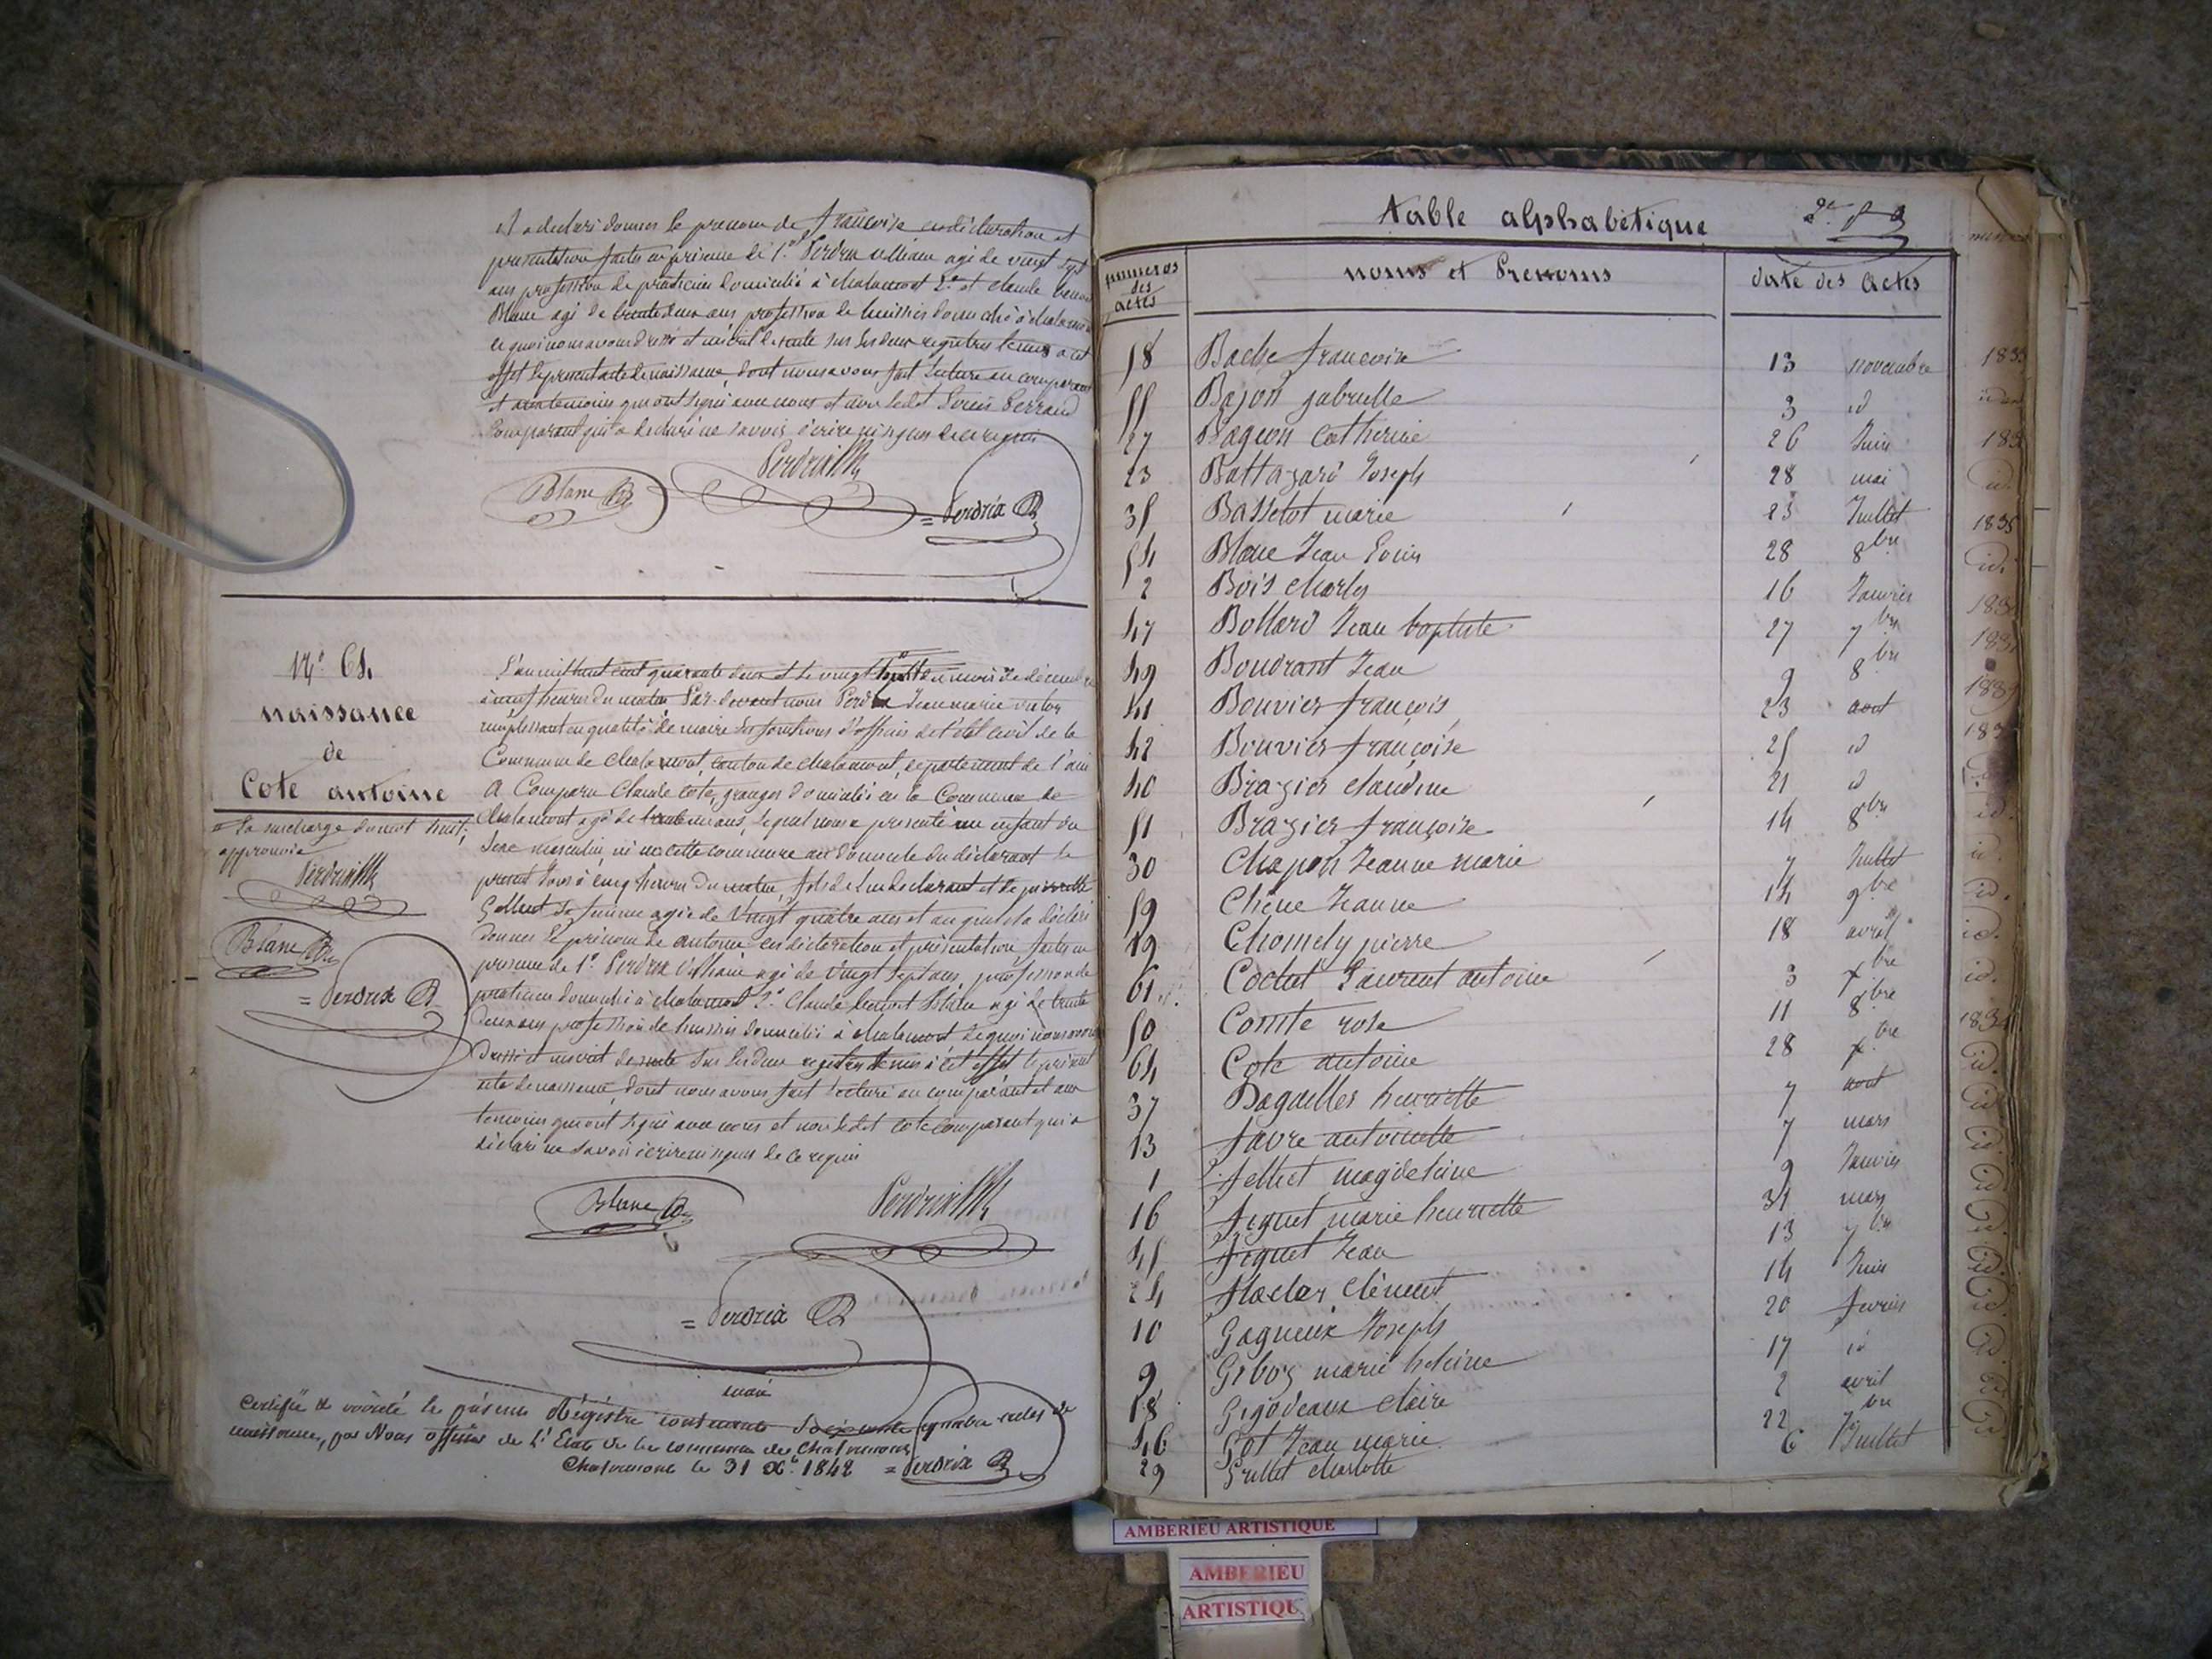 et a déclaré donner le prénom de françoise ces déclaration et
présentation faites en présence de 1° Perdrix agé de vingt sept
ans profession de praticien domicilié à chalamont 2° et claude benoit
Blanc agé de trente deux ans profession de huissier domicilié à chalamont
de quoi nous avons dressé et inscrit de suite sur les deux registres tenus a cet
effet le présent acte de naissance, dont nous avons fait lecture au comparant
et aux temoins qui ont signé avec nous et non ledit Perraud
comparant qui a declaré ne savoir écrire ni signer de ce requis
Perdrix
Blanc
= Perdrix
N° 64.
naissance
de
Cote antoine
= la surcharge du mot huit,
approuvée
Perdrix
Blanc
= Perdrix
L'an mil huit cent quarante deux et le vingt huit du mois de décembre
à neuf heures du matin Par-devant nous Perdrix Jean marie victor
remplissant en qualité de maire les fonctions d'officier de l'état civil de la
Commune de chalamont, canton de chalamont, département de l'ain
A Comparu Claude cote, granger domicilié en la Commune de
chalamont agé de ans, lequel nous a présenté un enfant du
Sexe masculin, né en cette commune au domicile du déclarant le
présent jour à cinq heures du matin, fils de lui declarant et de pierrette
Sa femme agée de Vingt quatre ans et auquel il a déclaré
donner le prénom de antoine ces déclaration et présentation faites en
présence de 1° Perdrix agé de vingt sept ans, profession de
praticien domicilié à chalamont 2° Claude benoit Blanc agé de trente
deux ans profession de huissier domicilié à chalamont de quoi nous avons
dressé et inscrit de suite sur les deux registres tenus à cet effet le présent
acte de naissance, dont nous avons fait lecture au comparant et aux
temoins qui ont signé avec nous et non ledit cote comparant qui a
déclaré ne savoir écrire ni signer de ce requis
Blanc
Perdrix
= Perdrix
Certifié & vérité le présent Régistre contenant Soixante quatre actes de
naissance, par Nous officier de l'Etat de la commune de Chalamont,
maire
Chalamont le 31 Xe 1842 = Perdrix
Table alphabétique
numeros des actes noms et Prenoms date des actes
18 Bache francoise 13 novembre
55 Bajon gabrielle 3 id
27 Bageon Catherine 26 Juin
23 Battazard Joseph 28 mai
35 Basselot marie 23 Juillet
54 Blanc Jean Louis 28 8bre
2 Bois charles 16 Janvier
47 Bollard Jean baptiste 27 7bre
49 Boudrant Jean 9 8bre
41 Bouvier françois 23 aout
42 Bouvier françoise 25 id
40 Brazier claudine 21 id
51 Brazier françoise 14 8bre
30 Chapon Jeanne marie 7 Juillet id.
59 Chêne Jeanne 14 9bre id.
19 Chomely pierre 18 avril id.
61 Cochet Laurent antoine 3 xbre id.
50 Comte rose 11 8bre
64 Cote antoine 28 xbre id.
37 Daguelles henriette 7 aout id.
13 favre antoinette 7 mars id.
1 felliet magdeleine 9 Janvier id.
16 figuet marie henriette 31 mars id.
45 figuet Jean 13 7bre id.
24 flacher clément 14 Juin id.
10 Gagneux Joseph 20 fevrier id.
9 Giboz marie heleine 17 id
18 Gigodeaux claire 2 avril
46 Got Jean marie 22 7bre
29 Grillet charlotte 6 Juillet
AMBERIEU ARTISTIQUE
AMBERIEU
ARTISTIQUE